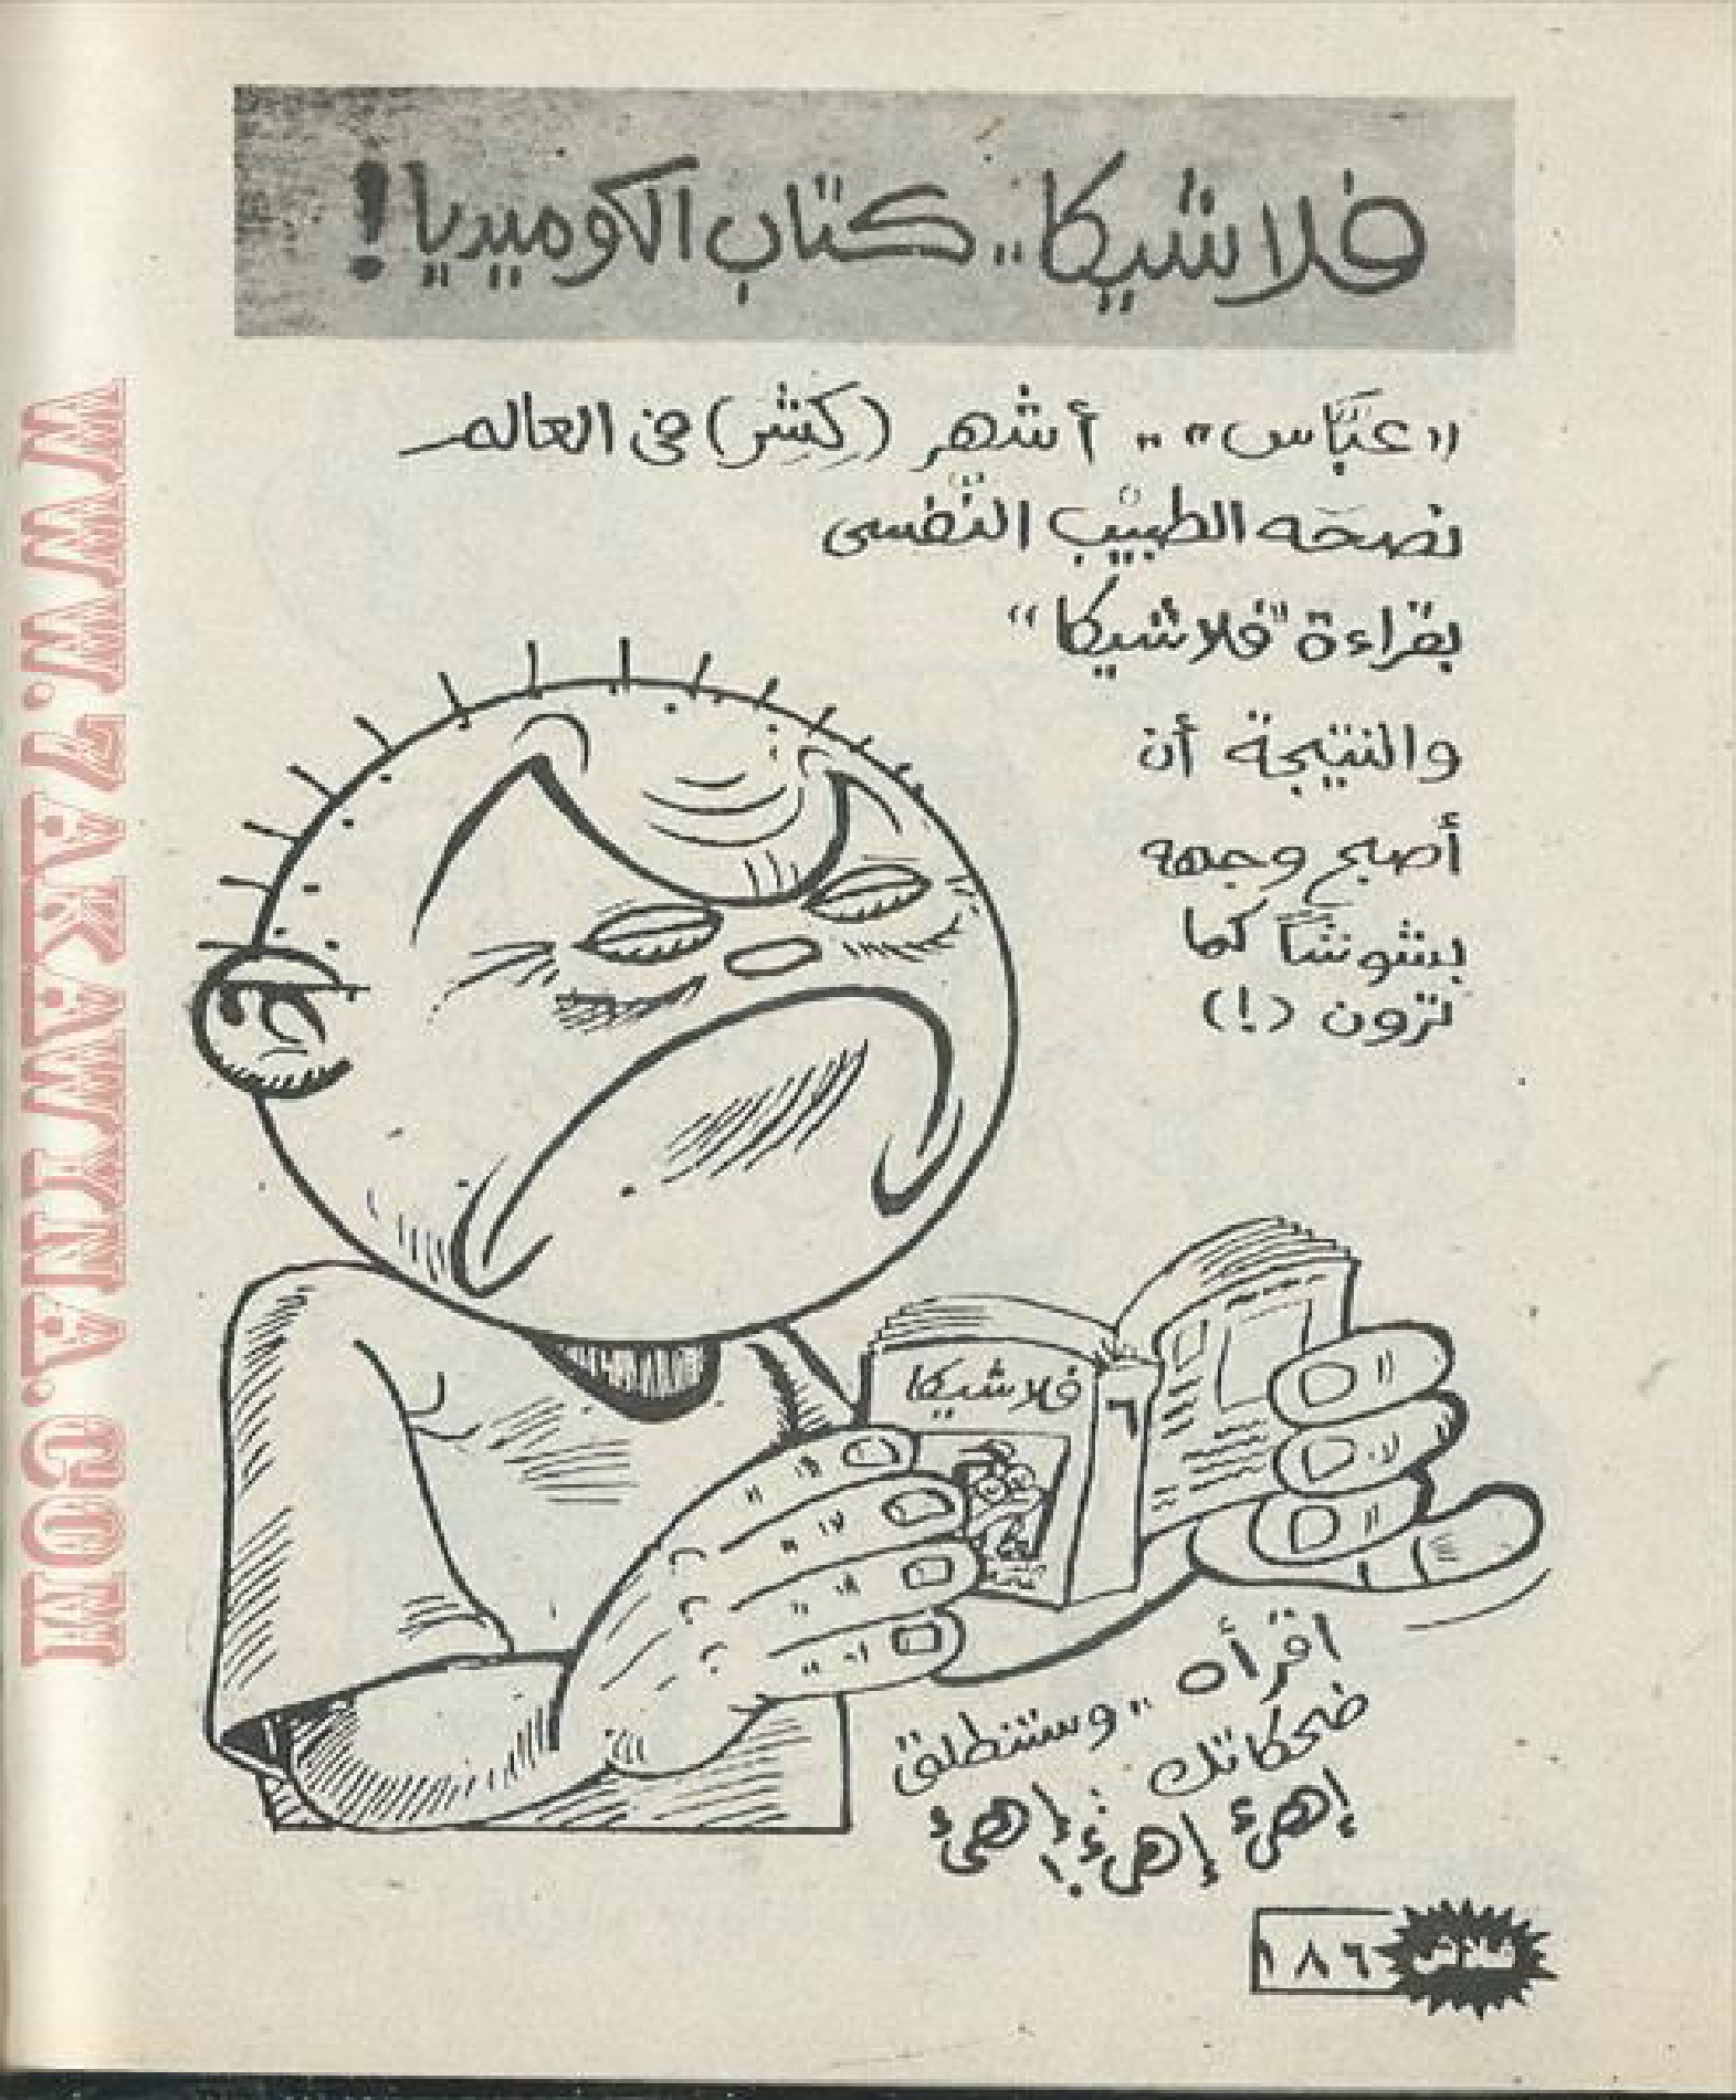 فلاشيكا.. كتاب الكوميديا!
«عَبَّاس».. أشهر (كَشَر) فى العالم
نصحَه الطبيب النَّفسى
بقراءة "فلاشيكا"
والنتيجة أن
أصبح وجهه
بشوشًا كما
ترون (!)
فلاشيكا
٦
اقرأه.. وستنطلق
ضحكاتك:
إهئ إهئ إهئ!
فلاش
١٨٦
WWW.7AKAWITNA.COM